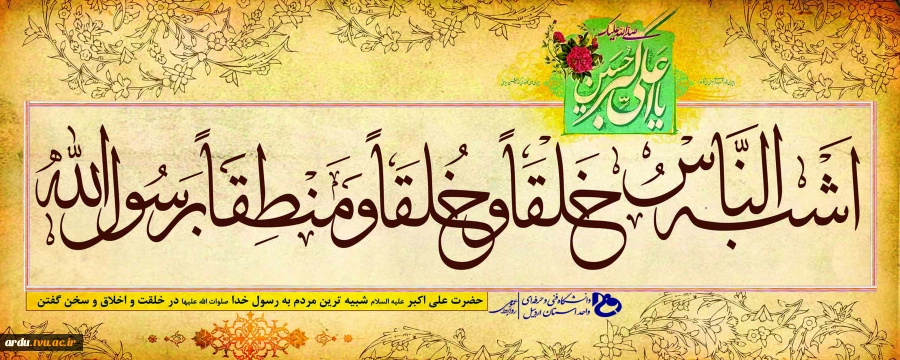 صلی الله علیک
یا علی اکبر حسین
اَشْبَهُ النَّاسِ خَلْقَاً وَ خُلقَاً وَ مَنْطِقَاً بِرَسُولِ اللّٰه
حضرت علی اکبر علیه السلام شبیه ترین مردم به رسول خدا صلوات الله علیها در خلقت و اخلاق و سخن گفتن
دانشگاه فنی و حرفه ای
واحد استان اردبیل
ardu.tvu.ac.ir